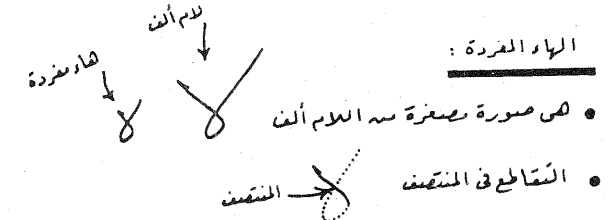 الهاء المفردة :
لام ألف
هاء مفردة
• هى صورة مصغرة من اللام ألف
• التقاطع فى المنتصف
المنتصف